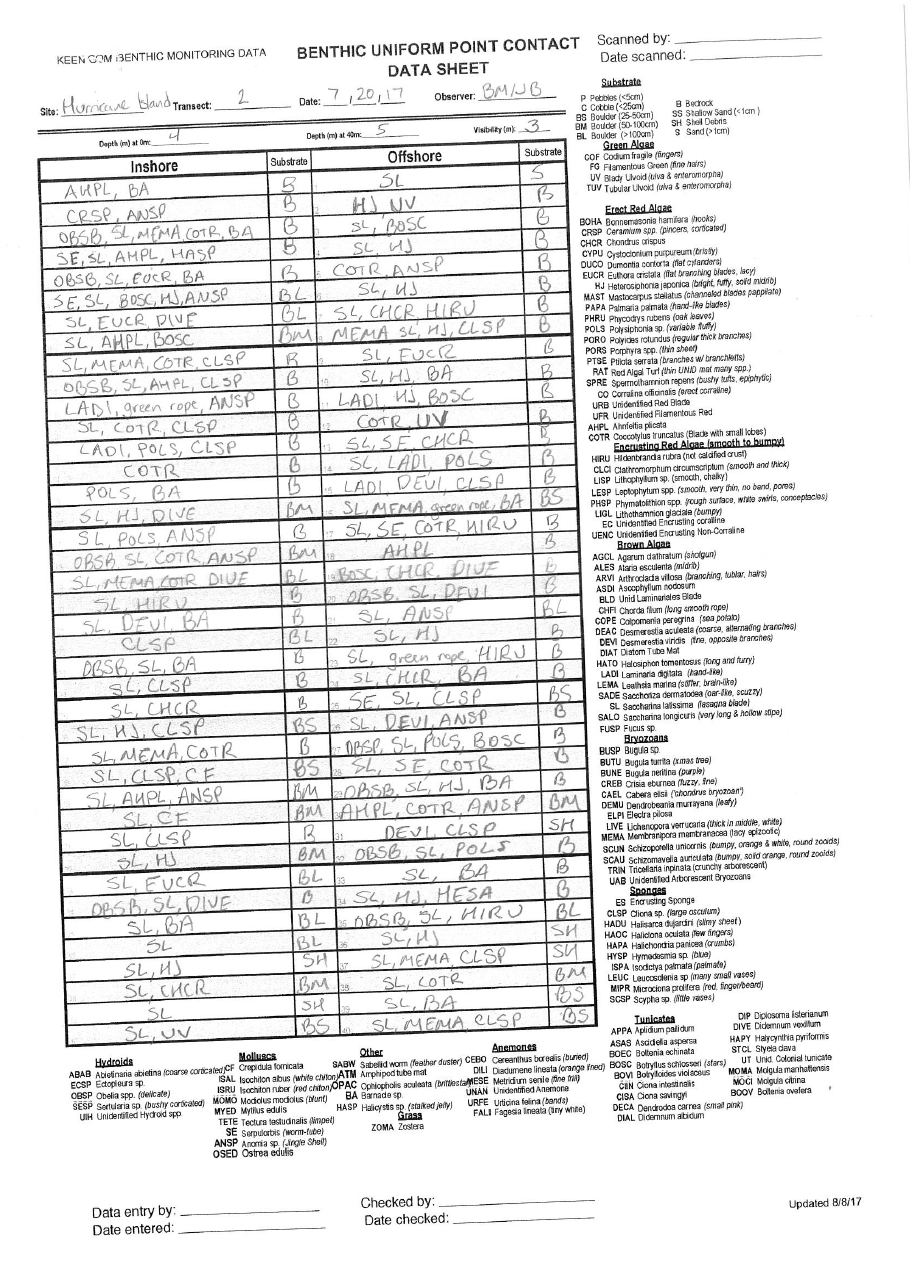 KEEN COM BENTHIC MONITORING DATA
BENTHIC UNIFORM POINT CONTACT
DATA SHEET
Scanned by:
Date scanned:
Site: Hurricane Island Transect: 2 Date: 7, 20, 17 Observer: BM/JB
Depth (m) at 0m: 4 Depth (m) at 40m: 5 Visibility (m): 3
Inshore Substrate Offshore Substrate
AHPL, BA B SL S
CRSP, ANSP B HJ, UV B
OBSB, SL, MEMA, COTR, BA B SL, BOSC B
SE, SL, AHPL, HASP B SL HJ B
OBSB, SL, EUCR, BA B COTR, ANSP B
SE, SL, BOSC, HJ, ANSP BL SL, HJ B
SL, EUCR, DIVE BL SL, CHCR HIRU B
SL, AHPL, BOSC BM MEMA SL, HJ, CLSP B
SL, MEMA, COTR, CLSP B SL, EUCR B
OBSB, SL, AHPL, CLSP B 10 SL, HJ, BA B
LADI, green rope, ANSP B 11 LADI, HJ, BOSC B
SL, COTR, CLSP B 12 COTR, UV B
LADI, POLS, CLSP B 13 SL, SE, CHCR B
COTR B 14 SL, LADI, POLS B
POLS, BA B 15 LADI, DEVI, CLSP B
SL, HJ, DIVE BM SL, MEMA, green rope, BA BS
SL, POLS, ANSP B 17 SL, SE, COTR, HIRU B
OBSB, SL, COTR, ANSP BM 18 AHPL B
SL, MEMA, COTR DIVE BL BOSC, CHCR, DIVE B
SL, HIRU B 20 OBSB, SL, DEVI B
SL, DEVI, BA B SL, ANSP BL
CLSP BL 22 SL, HJ B
OBSB, SL, BA B SL, green rope, HIRU B
SL, CLSP B SL, CHCR, BA B
SL, CHCR B SE, SL, CLSP BS
SL, HJ, CLSP BS SL, DEVI, ANSP B
SL, MEMA, COTR B 27 OBSP, SL, POLS, BOSC B
SL, CLSP, CF BS 28 SL, SE, COTR B
SL, AHPL, ANSP BM OBSB, SL, HJ, BA B
SL, CF BM AHPL, COTR, ANSP BM
SL, CLSP B 31 DEVI, CLSP SH
SL, HJ BM OBSB, SL, POLS B
SL, EUCR BL 33 SL, BA B
OBSB, SL, DIVE B 34 SL, HJ, MESA B
SL, BA BL OBSB, SL, HIRU BL
SL BL 36 SL, HJ SH
SL, HJ SH 37 SL, MEMA, CLSP SH
SL, CHCR BM 38 SL, COTR BM
SL SH SL, BA BS
SL, UV BS 40 SL, MEMA CLSP BS
Substrate
P Pebbles (<5cm)
C Cobble (<25cm) B Bedrock
BS Boulder (25-50cm) SS Shallow Sand (<1cm)
BM Boulder (50-100cm) SH Shell Debris
BL Boulder (>100cm) S Sand (>1cm)
Green Algae
COF Codium fragile (fingers)
FG Filamentous Green (fine hairs)
UV Blady Ulvoid (ulva & enteromorpha)
TUV Tubular Ulvoid (ulva & enteromorpha)
Erect Red Algae
BOHA Bonnemaisonia hamifera (hooks)
CRSP Ceramium spp. (pincers, corticated)
CHCR Chondrus crispus
CYPU Cystoclonium purpureum (bristly)
DUCO Dumontia contorta (flat cylanders)
EUCR Euthora cristata (flat branching blades, lacy)
HJ Heterosiphonia japonica (bright, fluffy, solid midrib)
MAST Mastocarpus stellatus (channeled blades pappilate)
PAPA Palmaria palmata (hand-like blades)
PHRU Phycodrys rubens (oak leaves)
POLS Polysiphonia sp. (variable fluffy)
PORO Polyides rotundus (regular thick branches)
PORS Porphyra spp. (thin sheet)
PTSE Ptilota serrata (branches w/ branchletts)
RAT Red Algal Turf (thin UNID mat many spp.)
SPRE Spermothamnion repens (bushy tufts, epiphytic)
CO Corralina officinalis (erect corraline)
URB Unidentified Red Blade
UFR Unidentified Filamentous Red
AHPL Ahnfeltia plicata
COTR Coccotylus truncatus (Blade with small lobes)
Encrusting Red Algae (smooth to bumpy)
HIRU Hildenbrandia rubra (not calcified crust)
CLCI Clathromorphum circumscriptum (smooth and thick)
LISP Lithophyllum sp. (smooth, chalky)
LESP Leptophytum spp. (smooth, very thin, no band, pores)
PHSP Phymatolithon spp. (rough surface, white swirls, conceptacles)
LIGL Lithothamnion glaciale (bumpy)
EC Unidentified Encrusting coralline
UENC Unidentified Encrusting Non-Corraline
Brown Algae
AGCL Agarum clathratum (shotgun)
ALES Alaria esculenta (midrib)
ARVI Arthrocladia villosa (branching, tublar, hairs)
ASDI Ascophyllum nodosum
BLD Unid Laminariales Blade
CHFI Chorda filum (long smooth rope)
COPE Colpomenia peregrina (sea potato)
DEAC Desmerestia aculeata (coarse, alternating branches)
DEVI Desmerestia viridis (fine, opposite branches)
DIAT Diatom Tube Mat
HATO Halosiphon tomentosus (long and furry)
LADI Laminaria digitata (hand-like)
LEMA Leathsia marina (stiffer, brain-like)
SADE Sacchoriza dermatodea (oar-like, scuzzy)
SL Saccharina latissima (lasagna blade)
SALO Saccharina longicuris (very long & hollow stipe)
FUSP Fucus sp.
Bryozoans
BUSP Bugula sp.
BUTU Bugula turrita (xmas tree)
BUNE Bugula neritina (purple)
CREB Crisia eburnea (fuzzy, fine)
CAEL Cabera elisii ('chondrus bryozoan')
DEMU Dendrobeania murrayana (leafy)
ELPI Electra pilosa
LIVE Lichenopora verrucaria (thick in middle, white)
MEMA Membranipora membranacea (lacy epizootic)
SCUN Schizoporella unicornis (bumpy, orange & white, round zooids)
SCAU Schizomavella auriculata (bumpy, solid orange, round zooids)
TRIN Tricellaria inpinata (crunchy arborescent)
UAB Unidentified Arborescent Bryozoans
Sponges
ES Encrusting Sponge
CLSP Cliona sp. (large osculum)
HADU Halisarca dujardini (slimy sheet)
HAOC Haliclona oculata (few fingers)
HAPA Halichondria panicea (crumbs)
HYSP Hymedesmia sp. (blue)
ISPA Isodictya palmata (palmate)
LEUC Leucosolenia sp (many small vases)
MIPR Microciona prolifera (red, finger/beard)
SCSP Scypha sp. (little vases)
Hydroids
ABAB Abietinaria abietina (coarse corticated)
ECSP Ectopleura sp.
OBSP Obelia spp. (delicate)
SESP Sertularia sp. (bushy corticated)
UIH Unidentified Hydroid spp.
Molluscs
CF Crepidula fornicata
ISAL Isochiton albus (white chiton)
ISRU Isochiton ruber (red chiton)
MOMO Modiolus modiolus (blunt)
MYED Mytilus edulis
TETE Tectura testudinalis (limpet)
SE Serpulorbis (worm-tube)
ANSP Anomia sp. (Jingle Shell)
OSED Ostrea edulis
Other
SABW Sabellid worm (feather duster)
ATM Amphipod tube mat
OPAC Ophiopholis aculeata (brittlestar)
BA Barnacle sp.
HASP Halicystis sp. (stalked jelly)
Grass
ZOMA Zostera
Anemones
CEBO Cereanthus borealis (buried)
DILI Diadumene lineata (orange lined)
MESE Metridium senile (fine frill)
UNAN Unidentified Anemone
URFE Urticina felina (bands)
FALI Fagesia lineata (tiny white)
Tunicates
APPA Aplidium pallidum
ASAS Ascidiella aspersa
BOEC Boltenia echinata
BOSC Botryllus schlosseri (stars)
BOVI Botrylloides violaceus
CIIN Ciona intestinalis
CISA Ciona savingyi
DECA Dendrodoa carnea (small pink)
DIAL Didemnum albidum
DIP Diplosoma listerianum
DIVE Didemnum vexillum
HAPY Halycynthia pyriformis
STCL Styela clava
UT Unid. Colonial tunicate
MOMA Molgula manhattensis
MOCI Molgula citrina
BOOV Boltenia ovefera
Data entry by:
Date entered:
Checked by:
Date checked:
Updated 8/8/17